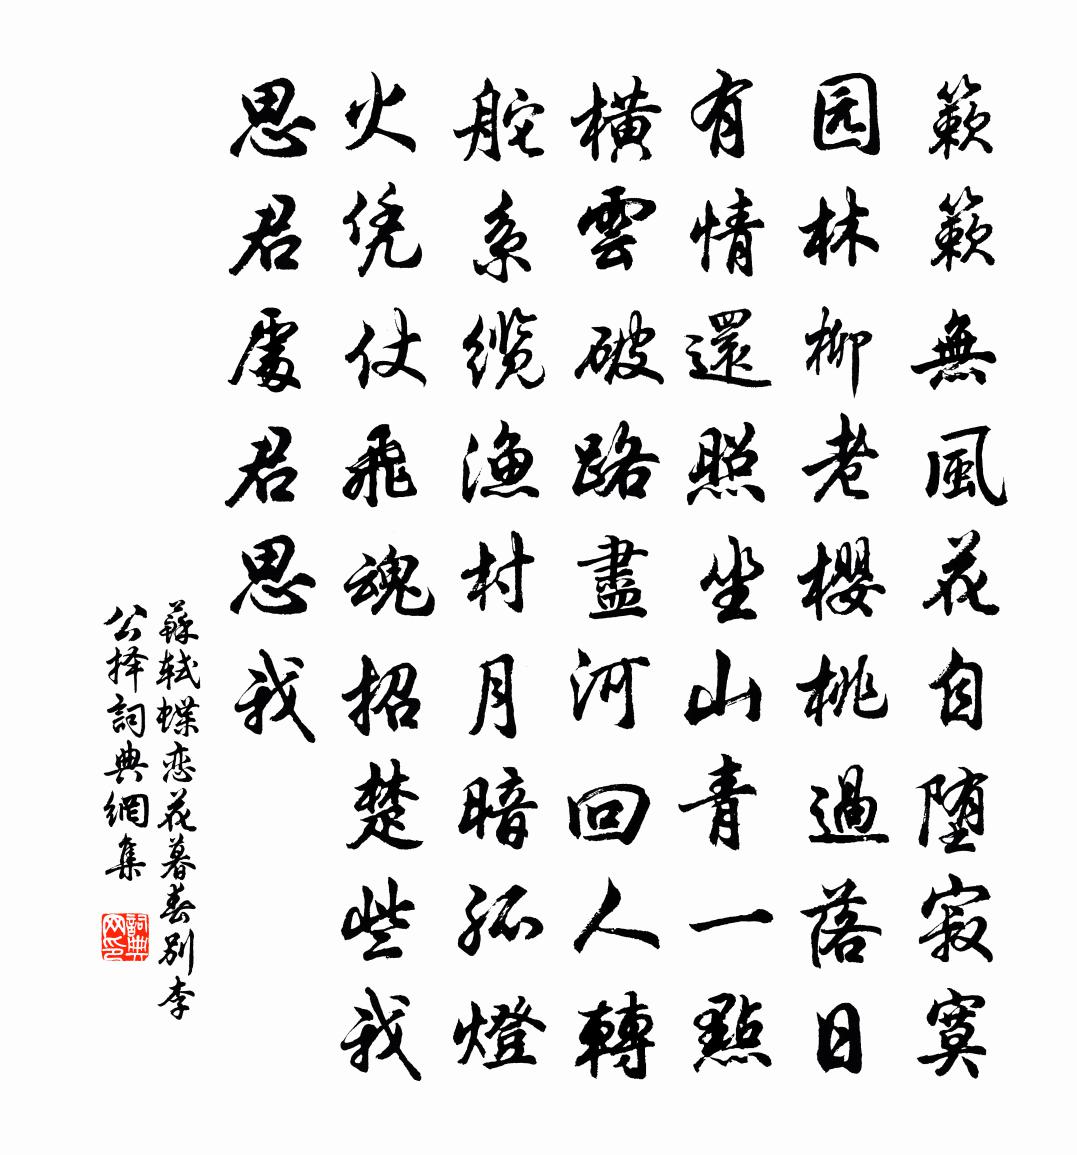 簌簌無風花自堕寂寞
园林柳老櫻桃過落日
有情還照坐山青一點
橫雲破路盡河回人轉
舵系缆漁村月暗孤燈
火凭仗飛魂招楚些我
思君處君思我
蘇轼蝶恋花暮春别李
公择詞典網集
詞典网印